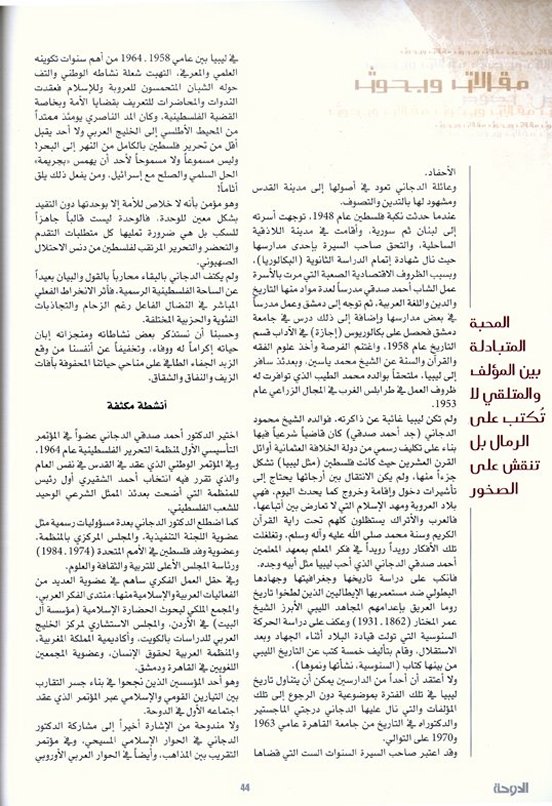 مقالات وبحوث
الأحفاد.
وعائلة الدجاني تعود في أصولها إلى مدينة القدس
ومشهود لها بالتدين والتصوف.
عندما حدثت نكبة فلسطين عام 1948، توجهت أسرته
إلى لبنان ثم سورية، وأقامت في مدينة اللاذقية
الساحلية، والتحق صاحب السيرة بإحدى مدارسها
حيث نال شهادة إتمام الدراسة الثانوية (البكالوريا)،
وبسبب الظروف الاقتصادية الصعبة التي مرت بالأسرة
عمل الشاب أحمد صدقي مدرساً لعدة مواد منها التاريخ
والدين واللغة العربية، ثم توجه إلى دمشق وعمل مدرساً
في بعض مدارسها وإضافة إلى ذلك درس في جامعة
دمشق فحصل على بكالوريوس (إجازة) في الآداب قسم
التاريخ عام 1958، واغتنم الفرصة وأخذ علوم الفقه
والقرآن والسنة عن الشيخ محمد ياسين، وبعدئذ سافر
إلى ليبيا، ملتحقاً بوالده محمد الطيب الذي توافرت له
ظروف العمل في طرابلس الغرب في المجال الزراعي عام
1953.
ولم تكن ليبيا غائبة عن ذاكرته، فوالده الشيخ محمود
الدجاني (جد أحمد صدقي) كان قاضياً شرعياً فيها
بناء على تكليف رسمي من دولة الخلافة العثمانية أوائل
القرن العشرين حيث كانت فلسطين (مثل ليبيا) تشكل
جزءاً منها، ولم يكن الانتقال بين أرجائها يحتاج إلى
تأشيرات دخول وإقامة وخروج كما يحدث اليوم، فهي
بلاد العروبة ومهد الإسلام التي لا تعارض بين أتباعها،
فالعرب والأتراك يستظلون كلهم تحت راية القرآن
الكريم وسنة محمد صلى الله عليه وآله وسلم، وتغلغلت
تلك الأفكار رويداً رويداً في فكر المعلم بمعهد المعلمين
أحمد صدقي الدجاني الذي أحب ليبيا مثل أبيه وجده.
فانكب على دراسة تاريخها وجغرافيتها وجهادها
البطولي ضد مستعمريها الإيطاليين الذين لطخوا تاريخ
روما العريق بإعدامهم المجاهد الليبي الأبرز الشيخ
عمر المختار (1862 ـ 1931) وعكف على دراسة الحركة
السنوسية التي تولت قيادة البلاد أثناء الجهاد وبعد
الاستقلال، وقام بتأليف خمسة كتب عن التاريخ الليبي
من بينها كتاب (السنوسية، نشأتها ونموها).
ولا أعتقد أن أحداً من الدارسين يمكن أن يتناول تاريخ
ليبيا في تلك الفترة بموضوعية دون الرجوع إلى تلك
المؤلفات والتي نال عليها الدجاني درجتي الماجستير
والدكتوراه في التاريخ من جامعة القاهرة عامي 1963
و1970 على التوالي.
وقد اعتبر صاحب السيرة السنوات الست التي قضاها
في ليبيا بين عامي 1958 ـ 1964 من أهم سنوات تكوينه
العلمي والمعرفي، التهبت شعلة نشاطه الوطني والتف
حوله الشبان المتحمسون للعروبة وللإسلام فعقدت
الندوات والمحاضرات للتعريف بقضايا الأمة وبخاصة
القضية الفلسطينية، وكان المد الناصري يومئذ ممتداً
من المحيط الأطلسي إلى الخليج العربي ولا أحد يقبل
أقل من تحرير فلسطين بالكامل من النهر إلى البحر!
وليس مسموعاً ولا مسموحاً لأحد أن يهمس «بجريمة»
الحل السلمي والصلح مع إسرائيل، ومن يفعل ذلك يلق
أثاماً!
وهو مؤمن بأنه لا خلاص للأمة إلا بوحدتها دون التقيد
بشكل معين للوحدة، فالوحدة ليست قالباً جاهزاً
للسكب بل هي ضرورة تمليها كل متطلبات التقدم
والتحضر والتحرير المرتقب لفلسطين من دنس الاحتلال
الصهيوني.
ولم يكتف الدجاني بالبقاء محارباً بالقول والبيان بعيداً
عن الساحة الفلسطينية الرسمية، فآثر الانخراط الفعلي
المباشر في النضال الفاعل رغم الزحام والتجاذبات
الفئوية والحزبية المختلفة.
وحسبنا أن نستذكر بعض نشاطاته ومنجزاته إبان
حياته إكراماً له ووفاء، وتخفيفاً عن أنفسنا من وقع
الزبد الجفاء الطافي على مناحي حياتنا المحفوفة بآفات
الزيف والنفاق والشقاق.
أنشطة مكثفة
اختير الدكتور أحمد صدقي الدجاني عضواً في المؤتمر
التأسيسي الأول لمنظمة التحرير الفلسطينية عام 1964،
وفي المؤتمر الوطني الذي عقد في القدس في نفس العام
والذي تقرر فيه انتخاب أحمد الشقيري أول رئيس
للمنظمة التي أضحت بعدئذ الممثل الشرعي الوحيد
للشعب الفلسطيني.
كما اضطلع الدكتور الدجاني بعدة مسؤوليات رسمية مثل
عضوية اللجنة التنفيذية، والمجلس المركزي بالمنظمة،
وعضوية وفد فلسطين في الأمم المتحدة (1974 ـ 1984)
ورئاسة المجلس الأعلى للتربية والثقافة والعلوم.
وفي حقل العمل الفكري ساهم في عضوية العديد من
الفعاليات العربية والإسلامية منها: منتدى الفكر العربي،
والمجمع الملكي لبحوث الحضارة الإسلامية (مؤسسة آل
البيت) في الأردن، والمجلس الاستشاري لمركز الخليج
العربي للدراسات بالكويت، وأكاديمية المملكة المغربية،
والمنظمة العربية لحقوق الإنسان، وعضوية المجمعين
اللغويين في القاهرة ودمشق.
وهو أحد المؤسسين الذين نجحوا في بناء جسر التقارب
بين التيارين القومي والإسلامي عبر المؤتمر الذي عقد
اجتماعه الأول في الدوحة.
ولا مندوحة من الإشارة أخيراً إلى مشاركة الدكتور
الدجاني في الحوار الإسلامي المسيحي، وفي مؤتمر
التقريب بين المذاهب، وأيضاً في الحوار العربي الأوروبي
المحبة
المتبادلة
بين المؤلف
والمتلقي لا
تُكتب على
الرمال بل
تنقش على
الصخور
44
الدوحة